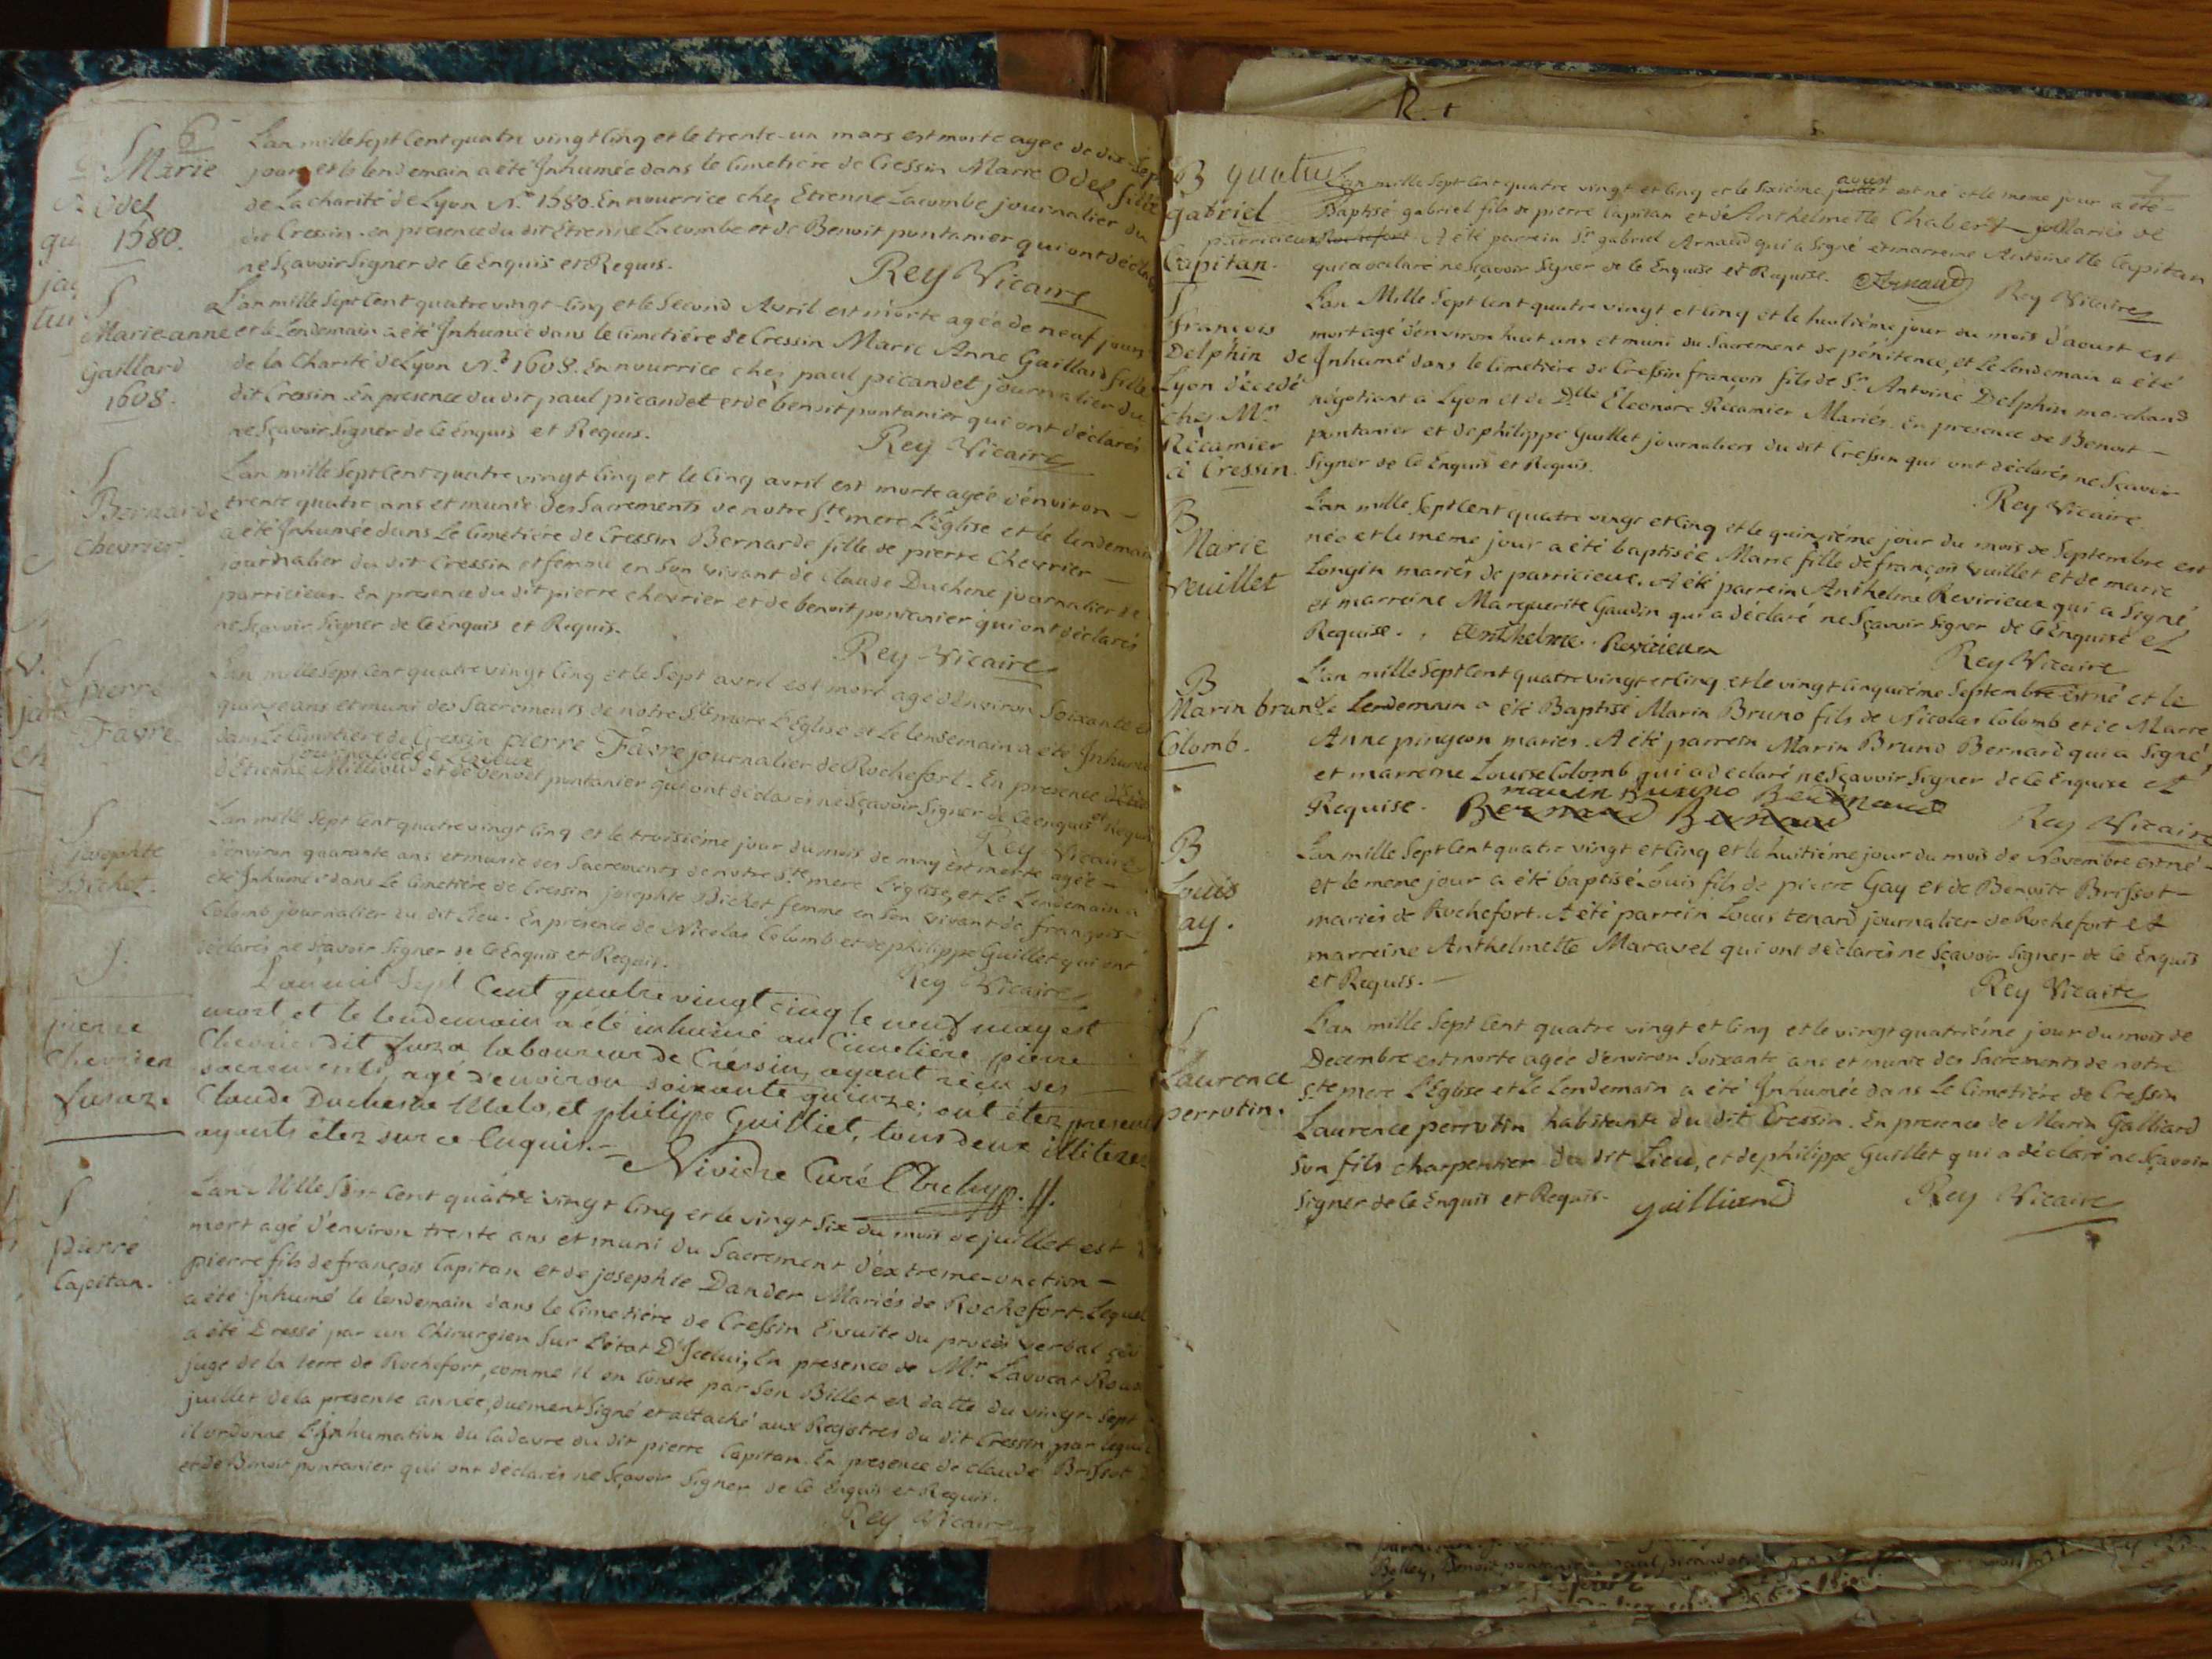 6
S
Marie
Odet
1580.
L'an mille sept cent quatre vingt cinq et le trente-un mars est morte agée de dix-sept
jours et le lendemain a été Inhumée dans le Cimetiére de Cressin Marie Odet fille
de La charité de Lyon N.° 1580. En nourrice chez Etienne Lacombe journalier du
dit Cressin. en présence du dit Etienne Lacombe et de Benoit pontanier qui ont déclaré
ne sçavoir signer de ce Enquis et Requis.
Rey Vicaire
S
Marie-anne
Gaillard
1608.
L'an mille sept cent quatre vingt-cinq et le second Avril est morte agée de neuf jours
et le Lendemain a été Inhumée dans le Cimetiére de Cressin Marie Anne Gaillard fille
de la Charité de Lyon N.° 1608. En nourrice chez paul picandet journalier du
dit Cressin En presence du dit paul picandet et de benoit pontanier qui ont déclarés
ne Sçavoir Signer de ce Enquis et Requis.
Rey Vicaire
S
Bernarde
Chevrier.
L'an mille Sept Cent quatre vingt cinq et le cinq avril est morte agée d'énviron
trente quatre ans et munie des Sacrements de notre Ste mere L'Église et le lendemain
a été Inhumée dans Le Cimetiére de Cressin Bernarde fille de pierre Chevrier
journalier du dit Cressin et femme en Son vivant de Claude Duchene journalier de
parricieux. En presence du dit pierre chevrier et de benoit pontanier qui ont déclarés
ne Sçavoir Signer de ce Enquis et Requis.
Rey Vicaire
S
pierre
Favre
L'an mille sept cent quatre vingt cinq et le Sept avril est mort agé d'énviron Soixante et
quinze ans et muni des Sacrements de notre Ste mere L'Eglise et Le lendemain a été Inhumé
dans Le Cimetiére de Cressin pierre Favre journalier de Rochefort. En presence
d'Etienne Millioud et de benoit pontanier qui ont déclarés ne Sçavoir Signer de ce enquis et Requis
Rey Vicaire
S
josephte
Bichet.
L'an mille Sept Cent quatre vingt cinq et le troisiéme jour du mois de may est morte agée
d'environ quarante ans et munie des Sacrements de notre Ste mere L'église, et Le Lendemain a
été Inhumée dans Le Cimetiére de Cressin josephte Bichet femme en Son vivant de françois
Colomb journalier du dit Lieu. En presence de Nicolas Colomb et de philippe Guillet qui ont
déclarés ne sçavoir Signer de ce Enquis et Requis.
Rey Vicaire
S.
pierre
Chevrier
fuzaz.
L'an mil Sept Cent quatre vingt cinq le neuf may est
mort et le lendemain a été inhumé au Cimetiére pierre
Chevrier dit fuza laboureur de Cressin, ayant reçu ses
sacrements, agé d'environ soixante quinze; ont étez presents
Claude Duchesne et philippe Guilliet, tous deux illitérés
ayants étez sur ce Enquis.
S
pierre
Capitan.
L'an Mille Sept Cent quatre vingt cinq et le vingt Six du mois de juillet est
mort agé d'énviron trente ans et muni du Sacrement d'éxtreme-onction
pierre fils de françois Capitan et de josephte Dander Mariés de Rochefort. Lequel
a été Inhumé le lendemain dans le Cimetiére de Cressin Ensuite du procés verbal qui
a été Dressé par un Chirurgien Sur L'état D'Icelui, En presence de Mr L'avocat
juge de la terre de Rochefort, comme il en Conste par Son Billet en datte du vingt-Sept
juillet de la presente année, duement Signé et attaché aux Registres du dit Cressin, par lequel
il ordonne L'Inhumation du Cadavre du dit pierre Capitan. En presence de Claude Brissot
et de Benoit pontanier qui ont déclarés ne Sçavoir Signer de ce Enquis et Requis.
Rey Vicaire
7
B
gabriel
Capitan.
L'an mille Sept Cent quatre vingt et cinq et le Sixiéme aoust est né et le meme jour a été
Baptisé gabriel fils de pierre Capitan et de Anthelmette Chabert Mariés de
parricieux Rochefort. A été parrein Sr gabriel Arnaud qui a Signé et marreine Antoinette Capitan
qui a declaré ne Sçavoir Signer de ce Enquise et Requise. Arnaud Rey Vicaire
S
francois
Delphin de
Lyon décedé
chez Mr
Récamier
à Cressin.
L'an Mille Sept Cent quatre vingt et cinq et le huitiéme jour du mois d'aoust est
mort agé d'énviron huit ans et muni du Sacrement de pénitence, et Le Lendemain a été
Inhumé dans le Cimetiére de Cressin françois fils de Sr Antoine Delphin marchand
négotiant a Lyon et de Dlle Eleonore Récamier Mariés. En presence de Benoit
pontanier et de philippe Guillet journaliers du dit Cressin qui ont déclarés ne Sçavoir
Signer de ce Enquis et Requis.
Rey Vicaire
B
Marie
Veuillet
L'an mille Sept Cent quatre vingt et cinq et le quinziéme jour du mois de Septembre est
née et le meme jour a été baptisée Marie fille de françois Vuillet et de marie
Longin mariés de parricieux. A été parrein Anthelme Revirieux qui a Signé
et marreine Marguerite Gaudin qui a déclaré ne Sçavoir Signer de ce Enquise et
Requise. Anthelme Revirieux
Rey Vicaire
B
Marin bruno
Colomb.
L'an mille Sept Cent quatre vingt et cinq et le vingt cinquiéme Septembre est né et le
Le Lendemain a été Baptisé Marin Bruno fils de Nicolas Colomb et de Marie
Anne pingeon mariés. A été parrein Marin Bruno Bernard qui a Signé,
et marreine Louise Colomb qui a declaré ne Sçavoir Signer de ce Enquise et
Requise. marin Bruno Bernard
Rey Vicaire
B
Louis
ay.
L'an mille Sept Cent quatre vingt et cinq et le huitiéme jour du mois de Novembre est né
et le meme jour a été baptisé Louis fils de pierre Gay et de Benoite Brissot
mariés de Rochefort. A été parrein Louis tenard journalier de Rochefort et
marreine Anthelmette Maravel qui ont déclarés ne Sçavoir Signer de ce Enquis
et Requis.
Rey Vicaire
S
Laurence
perrotin.
L'an mille Sept Cent quatre vingt et cinq et le vingt quatriéme jour du mois de
Decembre est morte agée d'environ Soixante ans et munie des Sacrements de notre
Ste mere L'Eglise et Le Lendemain a été Inhumée dans Le Cimetiére de Cressin
Laurence perrotin habitante du dit Cressin. En presence de Marin Galliard
Son fils charpentier du dit Lieu, et de philippe Guillet qui a déclaré ne Sçavoir
Signer de ce Enquis et Requis. gailliard Rey Vicaire